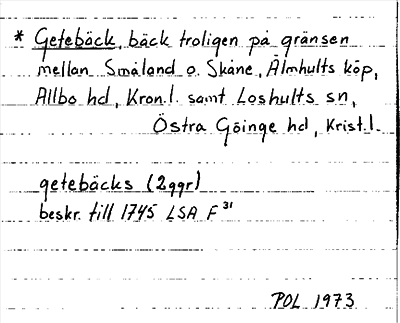 * Getebäck, bäck troligen på gränsen
mellan Småland o. Skåne, Älmhults köp,
Allbo hd, Kron.l. samt Loshults sn,
Östra Göinge hd, Krist.l.
getebäcks (2ggr)
beskr. till 1745 LSA F 31
POL 1973